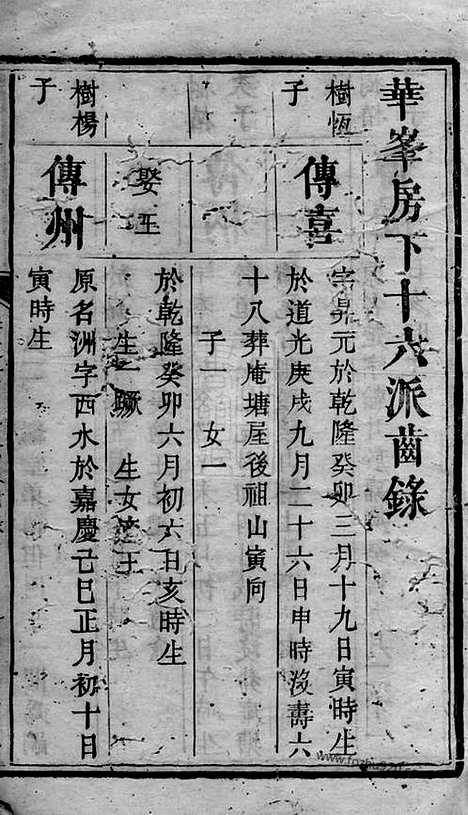 華峯房下十六派齒錄
樹恆
子
傳喜
字昇元於乾隆癸卯三月十九日寅時生
於道光庚戌九月二十六日申時沒壽六
十八葬庵塘屋後祖山寅向
子一 女一
娶王
於乾隆癸卯六月初六日亥時生
生一 生女 王
樹楊
子
傳州
原名洲字西水於嘉慶己巳正月初十日
寅時生